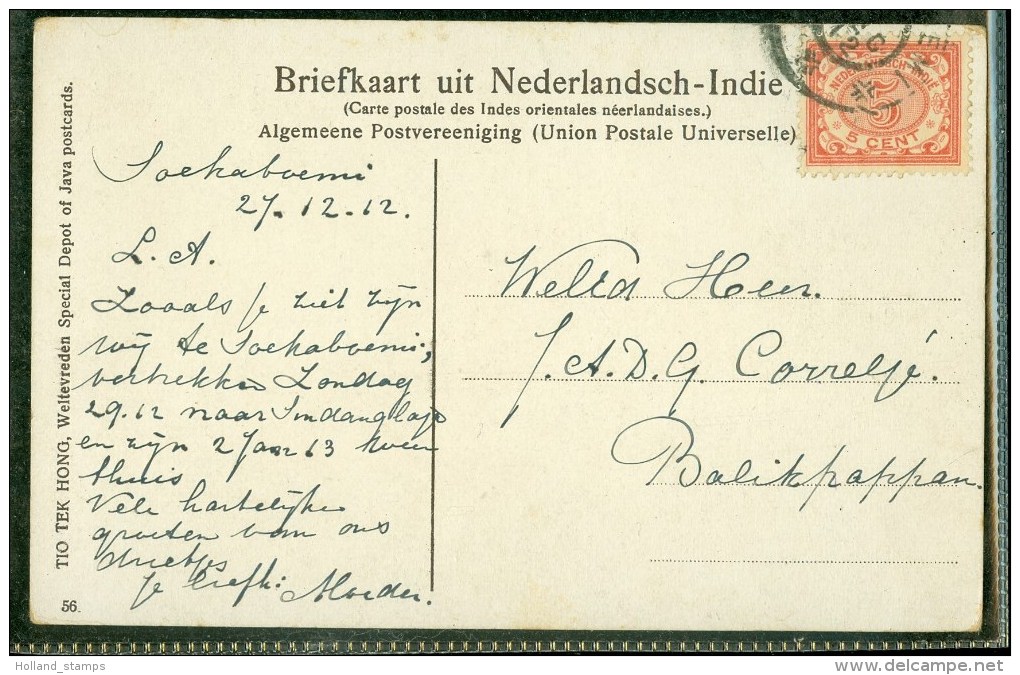 Briefkaart uit Nederlandsch-Indie
(Carte postale des Indes orientales néerlandaises.)
Algemeene Postvereeniging (Union Postale Universelle)
NEDERLANDSCH-INDIË
5
5 CENT
TIO TEK HONG, Weltevreden Special Depot of Java postcards.
56.
Soekaboemi
27.12.12.
L. A.
Zooals je ziet zijn
wij te Soekaboemi,
vertrekken Zondag
29.12 naar Sindanglaja
en zijn 2 Jan 13 weer
thuis
Vele hartelijke
groeten van ons
drietjes
je liefh: Moeder.
Weled Heer.
J. A. D. G. Correljé.
Balikpappan.
Holland_stamps
delcampe.net